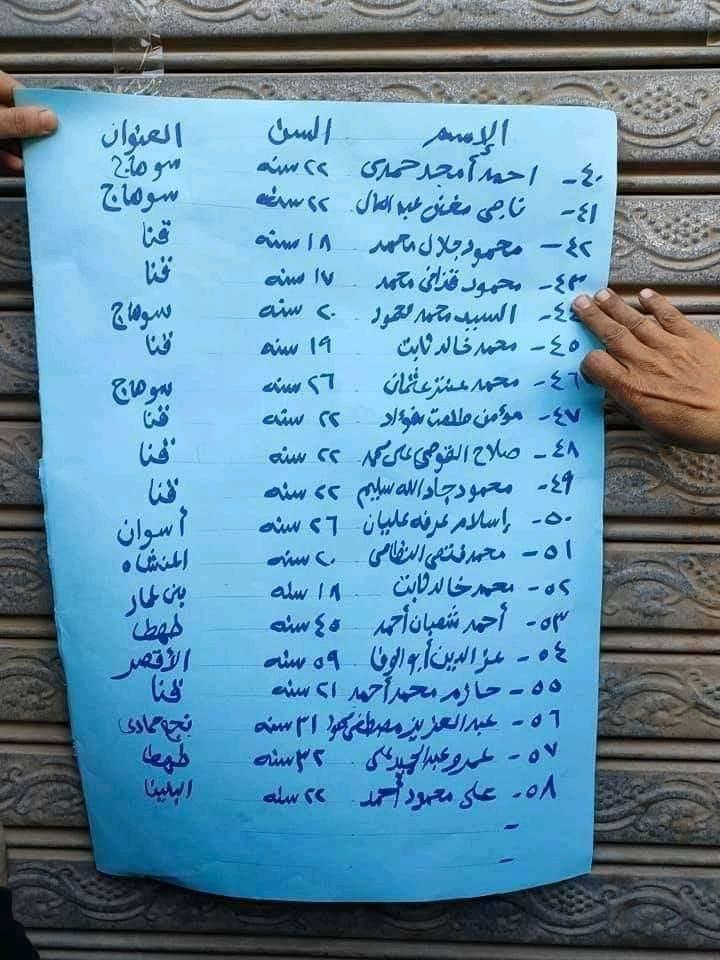 الإسم السن العنوان
٤٠- احمد أمجد حمدى ٢٢ سنه سوهاج
٤١- ناجى عبد العال ٢٢ سنه سوهاج
٤٢- محمود جلال محمد ١٨ سنه قنا
٤٣- محمود محمد ١٧ سنه قنا
٤٤- السيد محمد محمود ٢٠ سنه سوهاج
٤٥- محمد خالد ثابت ١٩ سنه قنا
٤٦- محمد عثمان ٢٦ سنه سوهاج
٤٧- مؤمن طلعت فؤاد ٢٢ سنه قنا
٤٨- صلاح على محمد ٢٢ سنه قنا
٤٩- محمود جاد الله سليم ٢٢ سنه قنا
٥٠- إسلام عرفه عليان ٢٦ سنه أسوان
٥١- محمد فتحى ٢٠ سنه المنشاه
٥٢- محمد خالد ثابت ١٨ سنه
٥٣- أحمد شعبان أحمد ٤٥ سنه طهطا
٥٤- عز الدين أبو الوفا ٥٩ سنه الأقصر
٥٥- حازم محمد أحمد ٢١ سنه قنا
٥٦- عبد العزيز مصطفى محمود ٣١ سنه نجع حمادى
٥٧- عمرو عبد الحميد على ٣٢ سنه طهطا
٥٨- على محمود أحمد ٢٢ سنه البلينا
-
-